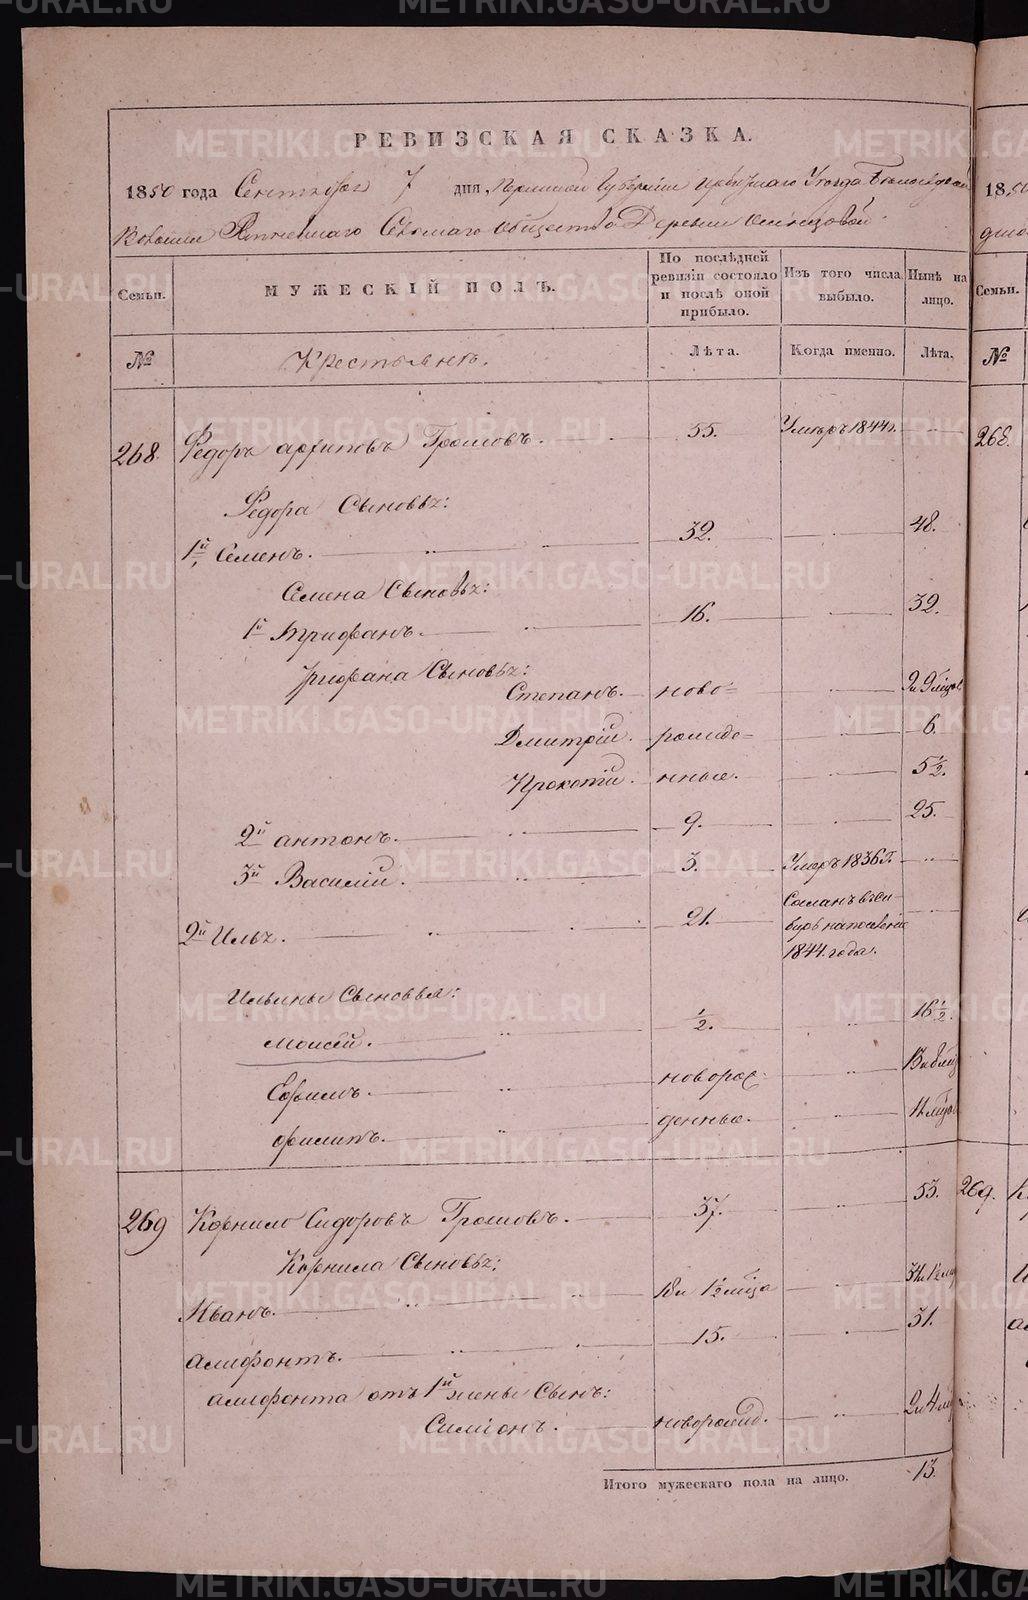 РЕВИЗСКАЯ СКАЗКА.
1850 года Сентября 7 дня, Пермской Губернии Ирбитскаго Уезда Белослудской
Волости Сельскаго общества Деревни
Семьи.
МУЖЕСКІЙ ПОЛЪ.
По послѣдней ревизіи состояло и послѣ оной прибыло.
Изъ того числа выбыло.
Нынѣ на лицо.
№
Крестьяне.
Лѣта.
Когда именно.
Лѣта.
268 Федоръ архиповъ Громовъ. 55. Умеръ 1844 г.
Федора Сыновья:
1й Семенъ. 32. 48.
Семена Сыновья:
1й Трифанъ. 16. 32.
Трифана Сыновья:
Степанъ. ново=
Дмитрій. рожде= 6.
Прокопій. нные. 5½.
2й антонъ. 9. 25.
3й Василій. 3. Умеръ 1836 г.
2й Илья. 21. Сосланъ в си-
бирь на поселеніе
1844. года.
Ильины Сыновья:
Моисей. ½. 16½.
Ефимъ. новорож-
филипъ. денные.
269 Корнило Сидоровъ Громовъ. 37. 53.
Корнила Сыновья:
Иванъ.
алифонтъ. 15. 31.
алифонта отъ 1й жены Сынъ:
Симіонъ. новорожд.
Итого мужескаго пола на лицо. 13.
1850
Семьи.
№
268.
269.
METRIKI.GASO-URAL.RU